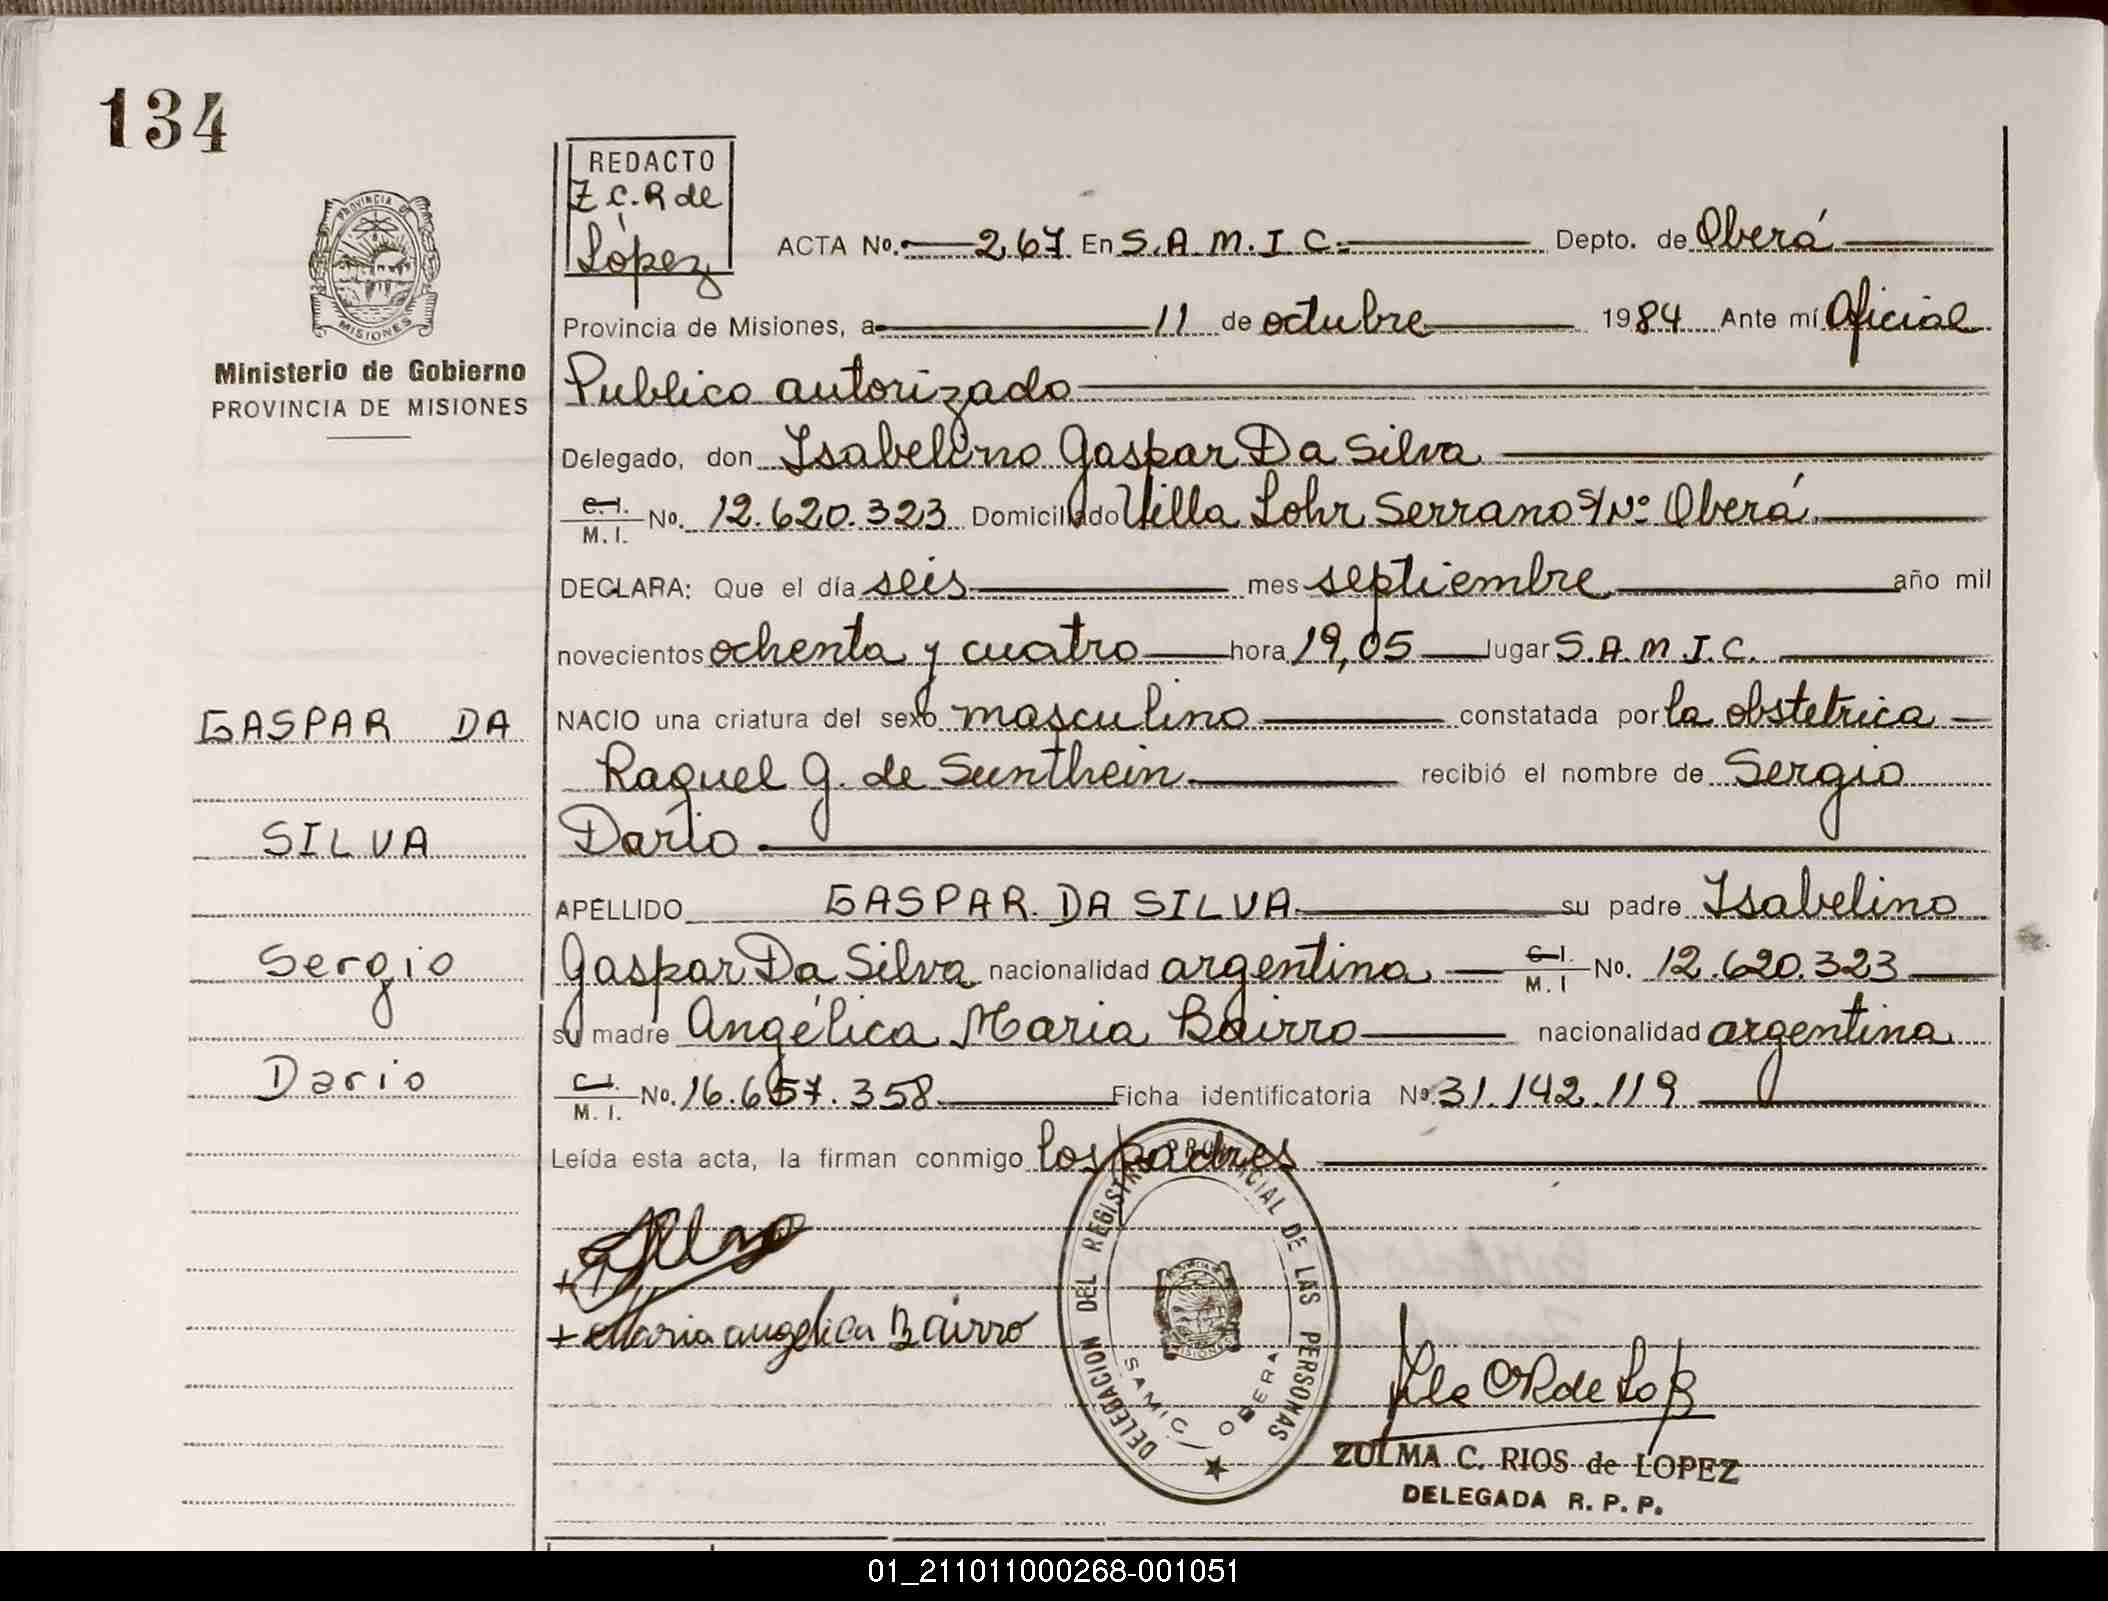 134
REDACTO
Z C. R de
López
PROVINCIA DE
MISIONES
Ministerio de Gobierno
PROVINCIA DE MISIONES
ACTA No. 267 En S.A.M.I.C. Depto. de Oberá
Provincia de Misiones, a 11 de octubre 1984 Ante mí Oficial
Publico autorizado
Delegado, don Isabelino Gaspar Da Silva
C.I. / M.I. No. 12.620.323 Domiciliado Villa Lohr Serrano S/Nº Oberá
DECLARA: Que el día seis mes septiembre año mil
novecientos ochenta y cuatro hora 19,05 lugar S.A.M.I.C.
NACIO una criatura del sexo masculino constatada por la obstetrica
Raquel G. de Sunthein recibió el nombre de Sergio
Dario
APELLIDO GASPAR DA SILVA su padre Isabelino
Gaspar Da Silva nacionalidad argentina C.I. / M.I No. 12.620.323
su madre Angélica Maria Bairro nacionalidad argentina
C.I. / M.I. No. 16.657.358 Ficha identificatoria Nº 31.142.119
Leída esta acta, la firman conmigo los padres
GASPAR DA
SILVA
Sergio
Dario
+
+ Maria angelica Bairro
DELEGACION DEL REGISTRO PROVINCIAL DE LAS PERSONAS
SAMIC OBERA
ZULMA C. RIOS de LOPEZ
DELEGADA R. P. P.
01_211011000268-001051